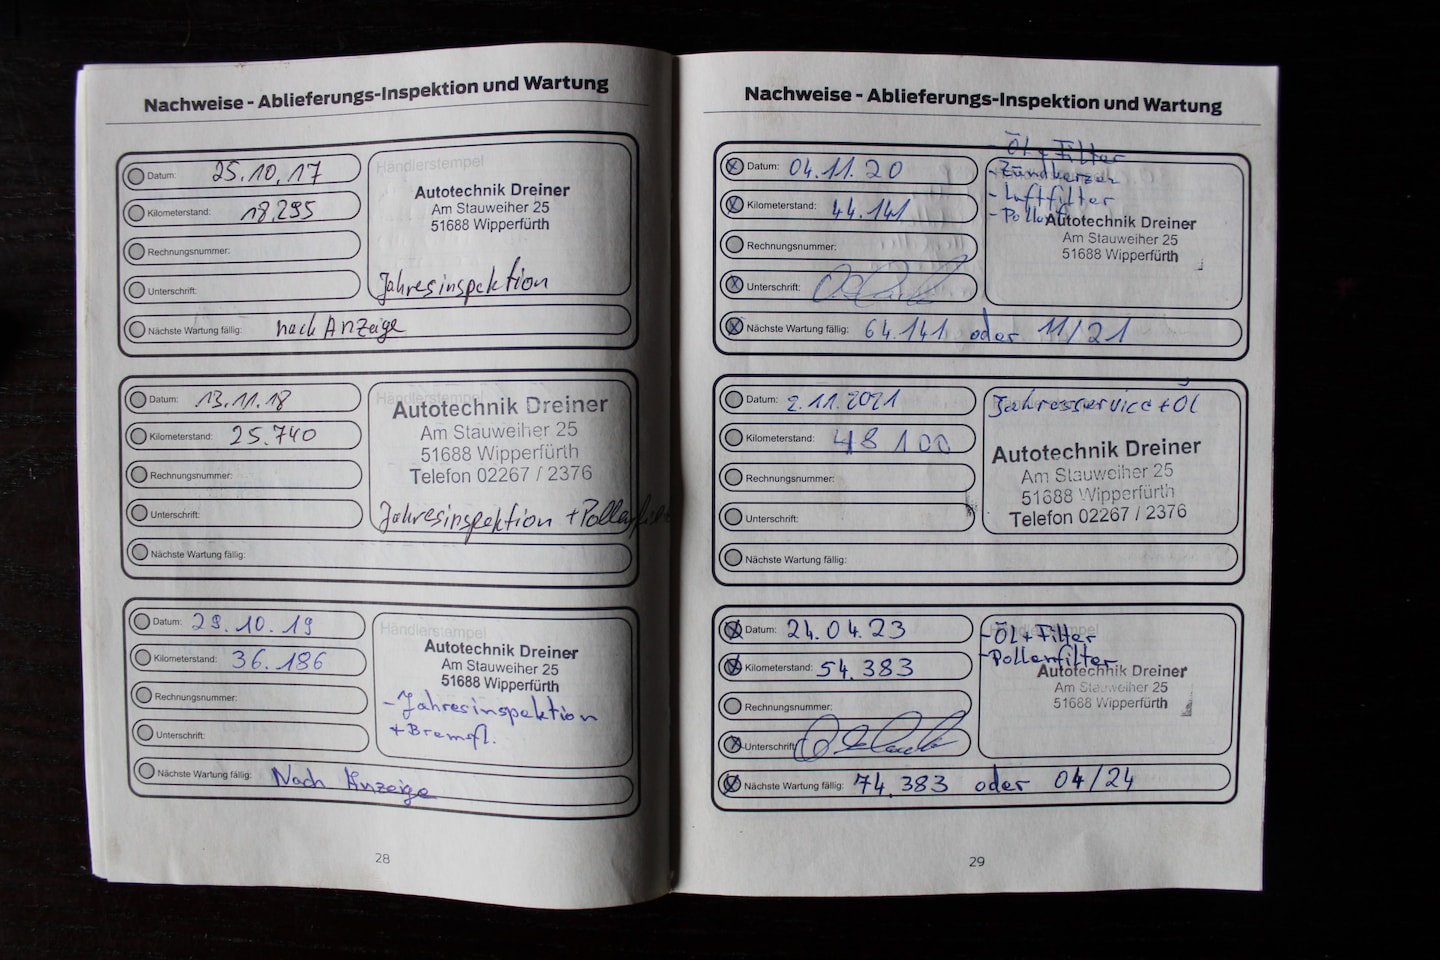 Nachweise - Ablieferungs-Inspektion und Wartung
Datum: 25.10.17
Kilometerstand: 18.295
Rechnungsnummer:
Unterschrift:
Nächste Wartung fällig: nach Anzeige
Händlerstempel
Autotechnik Dreiner
Am Stauweiher 25
51688 Wipperfürth
Jahresinspektion
Datum: 13.11.18
Kilometerstand: 25.740
Rechnungsnummer:
Unterschrift:
Nächste Wartung fällig:
Händlerstempel
Autotechnik Dreiner
Am Stauweiher 25
51688 Wipperfürth
Telefon 02267 / 2376
Jahresinspektion + Pollenfilter
Datum: 29.10.19
Kilometerstand: 36.186
Rechnungsnummer:
Unterschrift:
Nächste Wartung fällig: Nach Anzeige
Händlerstempel
Autotechnik Dreiner
Am Stauweiher 25
51688 Wipperfürth
- Jahresinspektion
+ Bremsfl.
28
Nachweise - Ablieferungs-Inspektion und Wartung
Datum: 04.11.20
Kilometerstand: 44.141
Rechnungsnummer:
Unterschrift:
Nächste Wartung fällig: 64.141 oder 11/21
- ÖL + Filter
- Zündkerzen
- Luftfilter
- Pollenf
Autotechnik Dreiner
Am Stauweiher 25
51688 Wipperfürth
Datum: 2.11.2021
Kilometerstand: 48100
Rechnungsnummer:
Unterschrift:
Nächste Wartung fällig:
Jahresservice + Öl
Autotechnik Dreiner
Am Stauweiher 25
51688 Wipperfürth
Telefon 02267 / 2376
Datum: 24.04.23
Kilometerstand: 54.383
Rechnungsnummer:
Unterschrift:
Nächste Wartung fällig: 74.383 oder 04/24
- ÖL + Filter
- Pollenfilter
Autotechnik Dreiner
Am Stauweiher 25
51688 Wipperfürth
29